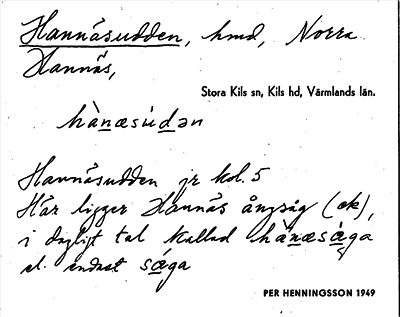 Hannäsudden, hmd, Norra
Hannäs,
Stora Kils sn, Kils hd, Värmlands län.
hànæsùdən
Hannäsudden jr kol. 5
Här ligger Hannäs ångsåg (ek),
i dagligt tal kallad hànæsága
el. endast sága
PER HENNINGSSON 1949